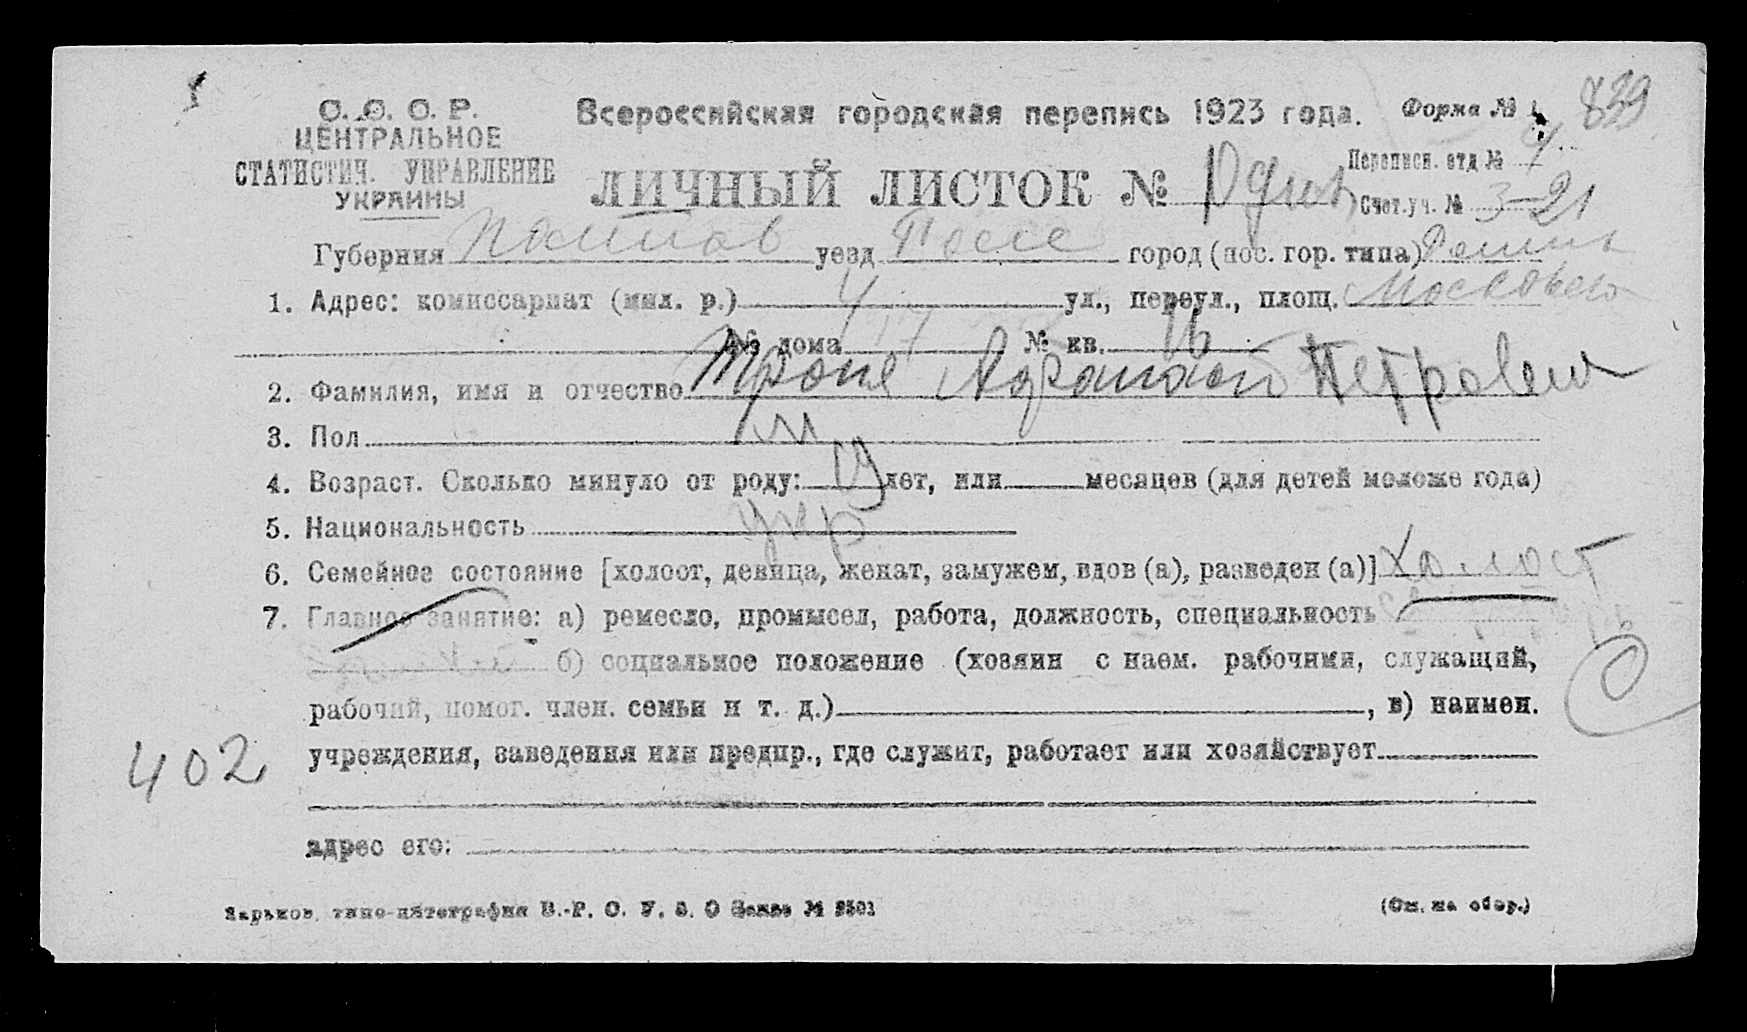 С. С. С. Р.
ЦЕНТРАЛЬНОЕ
СТАТИСТИЧ. УПРАВЛЕНИЕ
УКРАИНЫ
Всероссийская городская перепись 1923 года.
Форма № 1
839
ЛИЧНЫЙ ЛИСТОК №
Переписн. отд №
Счет.уч. № 3-21
Губерния Полтав уезд город (пос. гор. типа)
1. Адрес: комиссариат (мил. р.) 4 ул., переул., площ.
№ дома 17 № кв. 16
2. Фамилия, имя и отчество Петрович
3. Пол м
4. Возраст. Сколько минуло от роду: 19 лет, или месяцев (для детей моложе года)
5. Национальность укр
6. Семейное состояние [холост, девица, женат, замужем, вдов (а), разведен (а)] холост
7. Главное занятие: а) ремесло, промысел, работа, должность, специальность
б) социальное положение (хозяин с наем. рабочими, служащий,
рабочий, помог. член. семьи и т. д.) , в) наимен.
учреждения, заведения или предпр., где служит, работает или хозяйствует
402
адрес его:
Харьков, типо-литография В.-Р. О. У. З. О Заказ №
(См. на обор.)